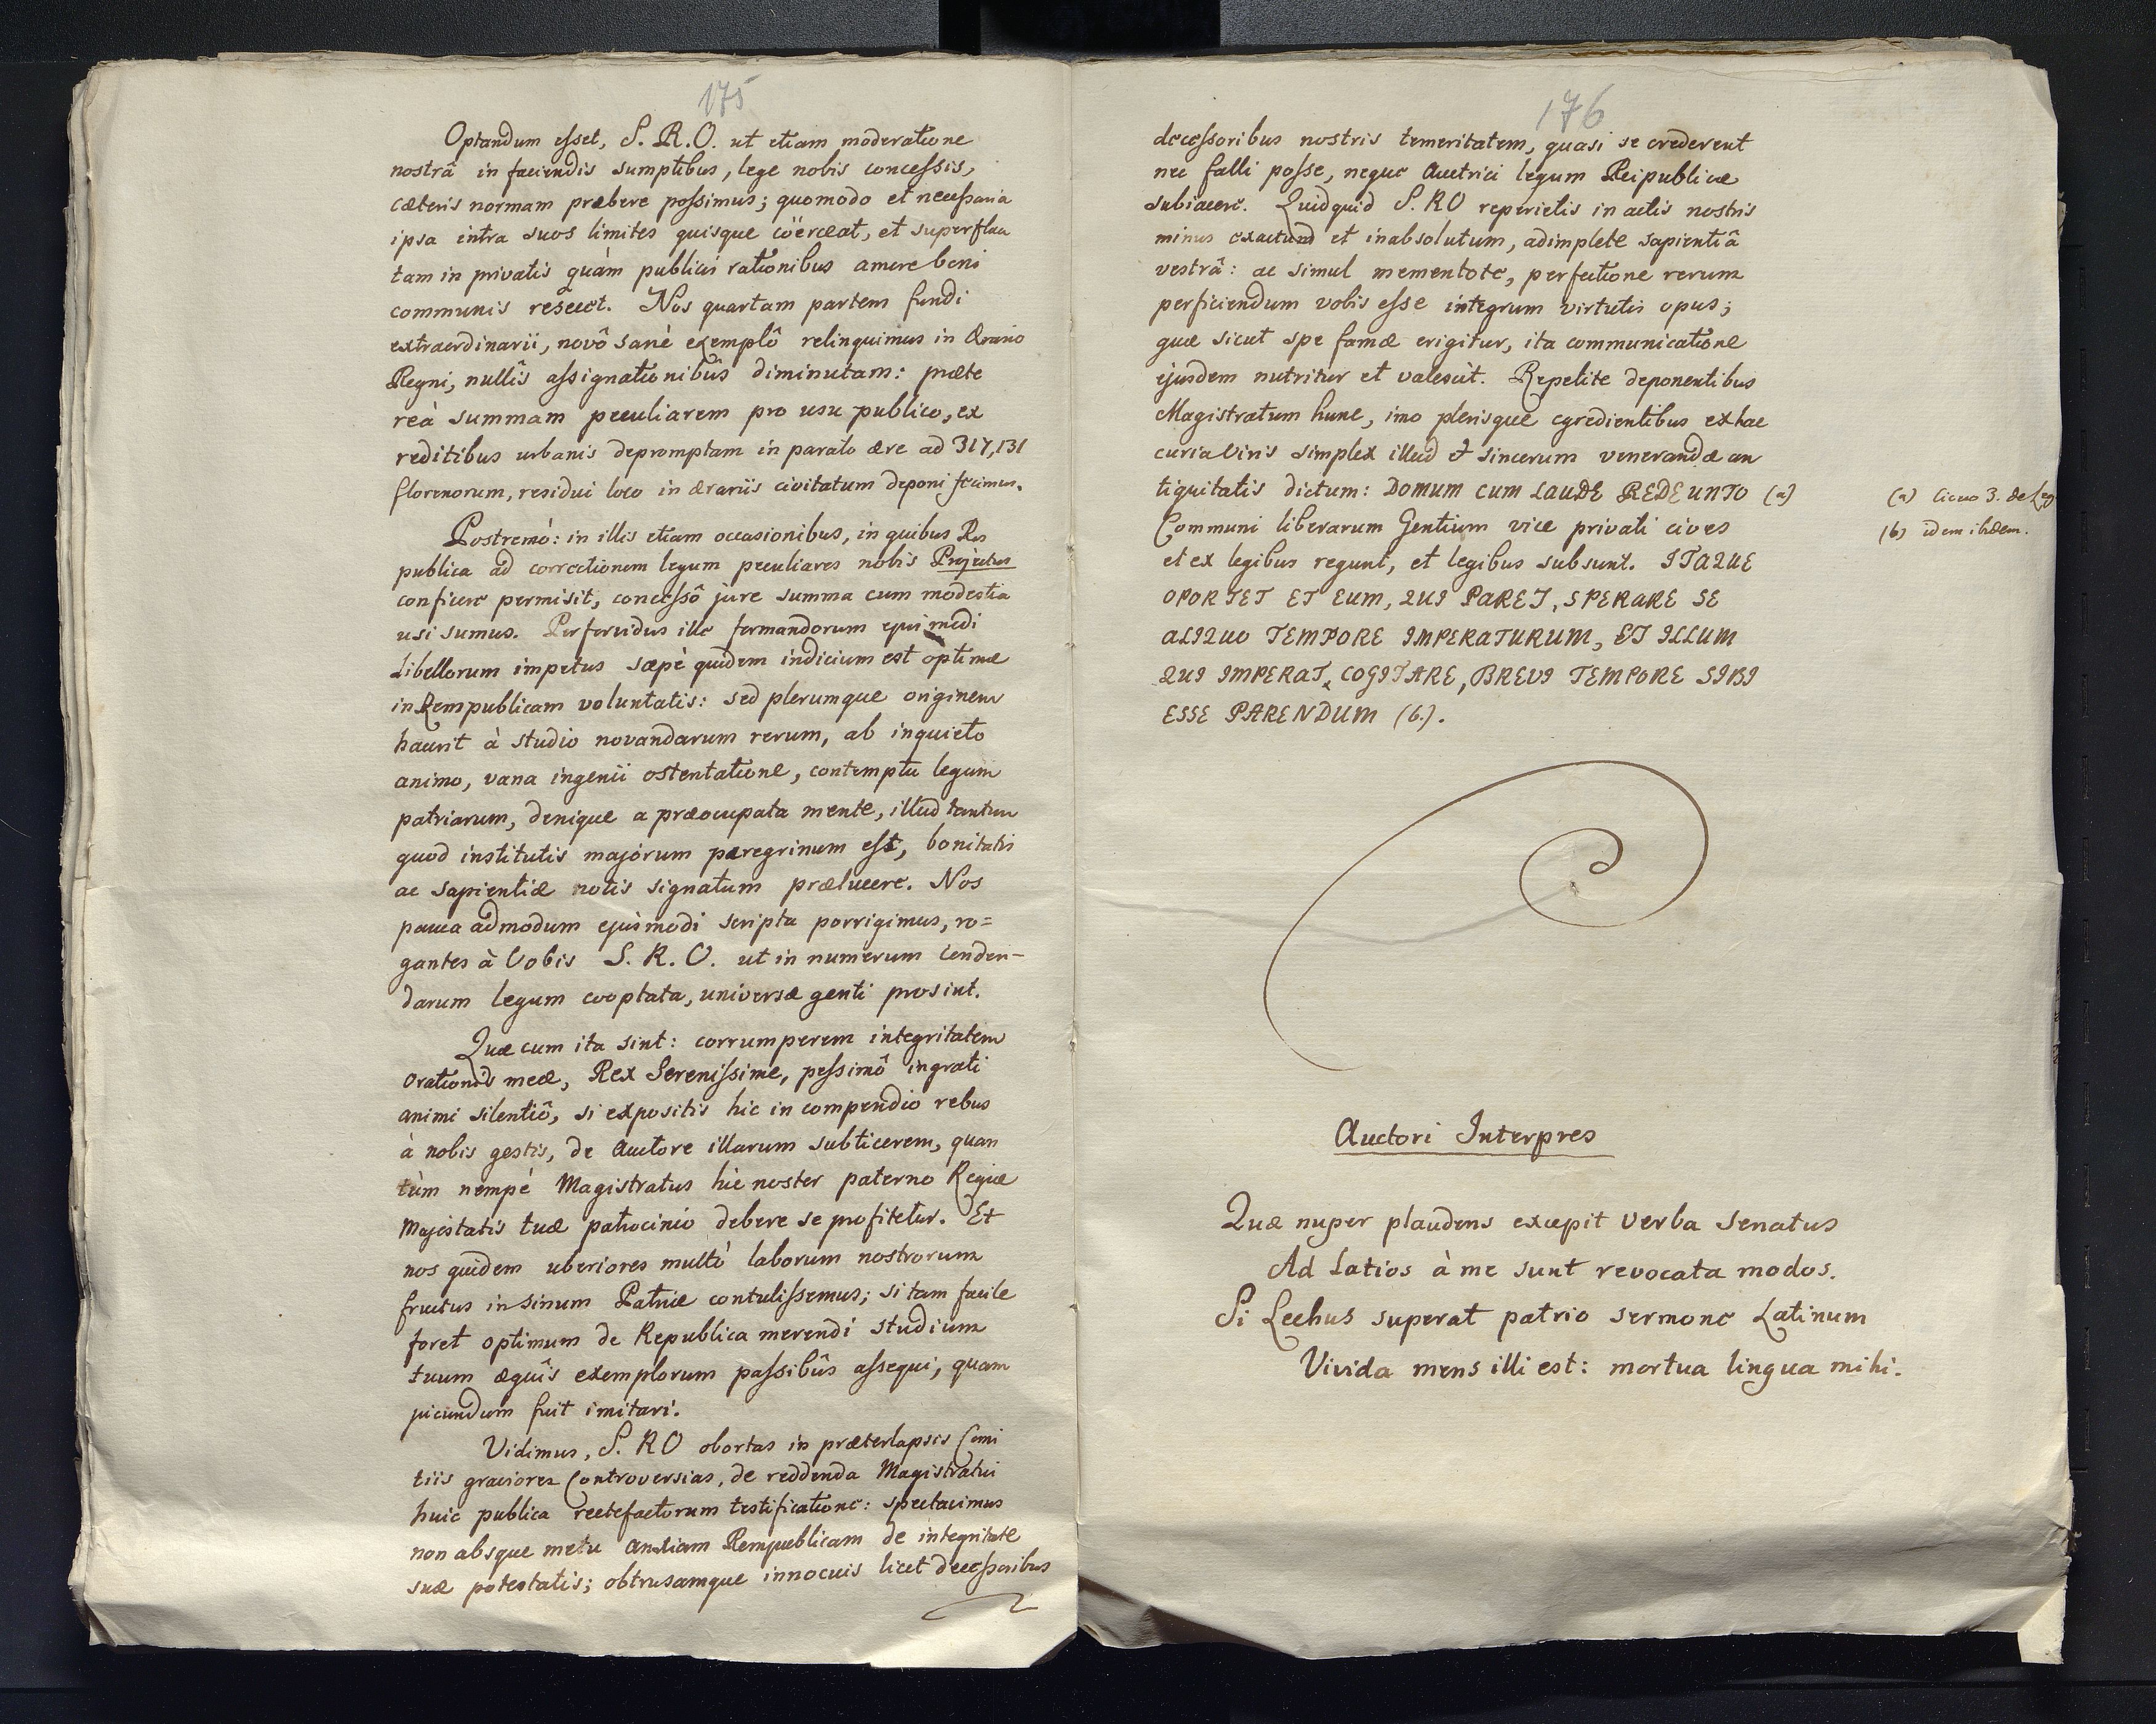 175
Optandum esset, S. R. O. ut etiam moderatione
nostrâ in faciendis sumptibus, lege nobis concessis,
cæteris normam præbere possimus; quomodo et necessaria
ipsa intra suos limites quisque cöerceat, et superflua
tam in privatis quàm publicis rationibus amore boni
communis resecet. Nos quartam partem fundi
extraordinarii, novô sanè exemplô relinquimus in Ærario
Regni, nullîs assignationibûs diminutam: præte
reà summam peculiarem pro usu publico, ex
reditibus urbanis depromptam in parato ære ad 317,131
florenorum, residui loco in ærariis civitatum deponi fecimus.
Postremò: in illis etiam occasionibus, in quibus Res
publica ad correctionem legum peculiares nobis Projectus
conficere permisit, concessô jure summa cum modestia
usi sumus. Perfervidus ille formandorum ejusmodi
Libellorum impetus sæpè quidem indicium est optimæ
in Rempublicam voluntatis: sed plerumque originem
haurit à studio novandarum rerum, ab inquieto
animo, vana ingenii ostentatione, contemptu legum
patriarum, denique a præocupata mente, illud tantum
quod institutis majorum peregrinum est, bonitatis
ac sapientiæ notis signatum prælucere. Nos
pauca admodum ejusmodi scripta porrigimus, ro=
gantes à Vobis S. R. O. ut in numerum conden-
darum legum cooptata, universæ genti prosint.
Quæ cum ita sint: corrumperem integritatem
orationis meæ, Rex Serenissime, pessimô ingrati
animi silentiô, si expositis hic in compendio rebus
à nobis gestis, de Auctore illarum subticerem, quan
tùm nempè Magistratus hic noster paterno Regiæ
Majestatis tuæ patrocinio debere se profitetur. Et
nos quidem uberiores multò laborum nostrorum
fructus in sinum Patriæ contulissemus; si tam facile
foret optimum de Republica merendi studium
tuum æquîs exemplorum passibûs assequi, quam
jucundum fuit imitari.
Vidimus, S. RO obortas in præterlapsis Comi
tiis graviores Controversias, de reddenda Magistratui
huic publica rectefactorum testificatione: spectavimus
non absque metu anxiam Rempublicam de integritate
suæ potestatis; obtrusamque innocuis licet decessoribus
176
decessoribus nostris temeritatem, quasi se crederent
nec falli posse, neque Auctrici legum Reipublicæ
subiacere. Quidquid S. RO reperietis in actis nostris
minus exactum et inabsolutum, adimplete sapientiâ
vestrâ: ac simul mementote, perfectione rerum
perficiendum vobis esse integrum virtutis opus;
quæ sicut spe famæ erigitur, ita communicatione
ejusdem nutritur et valescit. Repetite deponentibus
Magistratum hunc, imo plerisque egredientibus ex hac
curia Viris simplex illud et sincerum venerandæ an
tiquitatis dictum: DOMUM CUM LAUDE REDEUNTO (a)
Communi liberarum Gentium vice privati cives
et ex legibus regunt, et legibus subsunt. ITAQUE
OPORTET ET EUM, QUI PARET, SPERARE SE
ALIQUO TEMPORE IMPERATURUM, ET ILLUM
QUI IMPERAT, COGITARE, BREVI TEMPORE SIBI
ESSE PARENDUM (b.).
(a) Cicero 3. de Leg
(b) idem ibidem.
Auctori Interpres
Quæ nuper plaudens excepit verba Senatus
Ad Latios à me sunt revocata modos.
Si Lechus superat patrio sermone Latinum
Vivida mens illi est: mortua lingua mihi.